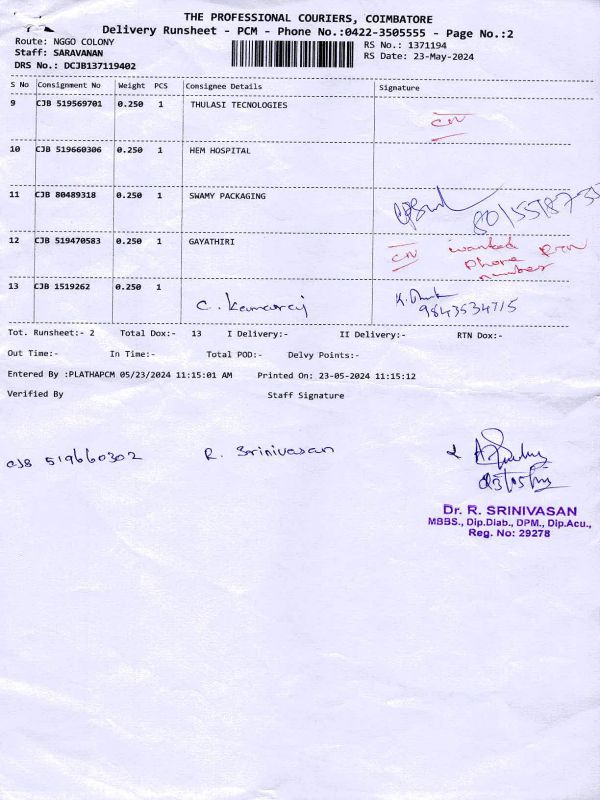 THE PROFESSIONAL COURIERS, COIMBATORE
Delivery Runsheet - PCM - Phone No.:0422-3505555 - Page No.:2
Route: NGGO COLONY
RS No.: 1371194
Staff: SARAVANAN
RS Date: 23-May-2024
DRS No.: DCJB137119402
S No Consignment No Weight PCS Consignee Details Signature
9 CJB 519569701 0.250 1 THULASI TECNOLOGIES CN
10 CJB 519660306 0.250 1 HEM HOSPITAL
11 CJB 80489318 0.250 1 SWAMY PACKAGING
12 CJB 519470583 0.250 1 GAYATHIRI CN wanted RTN
phone
number
13 CJB 1519262 0.250 1 C. Kamaraj
9843534715
Tot. Runsheet:- 2 Total Dox:- 13 I Delivery:- II Delivery:- RTN Dox:-
Out Time:- In Time:- Total POD:- Delvy Points:-
Entered By :PLATHAPCM 05/23/2024 11:15:01 AM Printed On: 23-05-2024 11:15:12
Verified By Staff Signature
CJB 519660302 R. Srinivasan
Dr. R. SRINIVASAN
MBBS., Dip.Diab., DPM., Dip.Acu.,
Reg. No: 29278